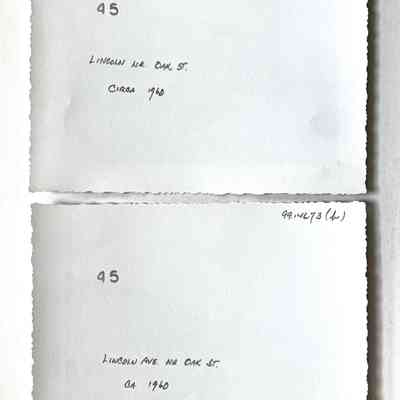 45
LINCOLN NR OAK ST.
CIRCA 1960
45
LINCOLN AVE NR OAK ST.
CA 1960